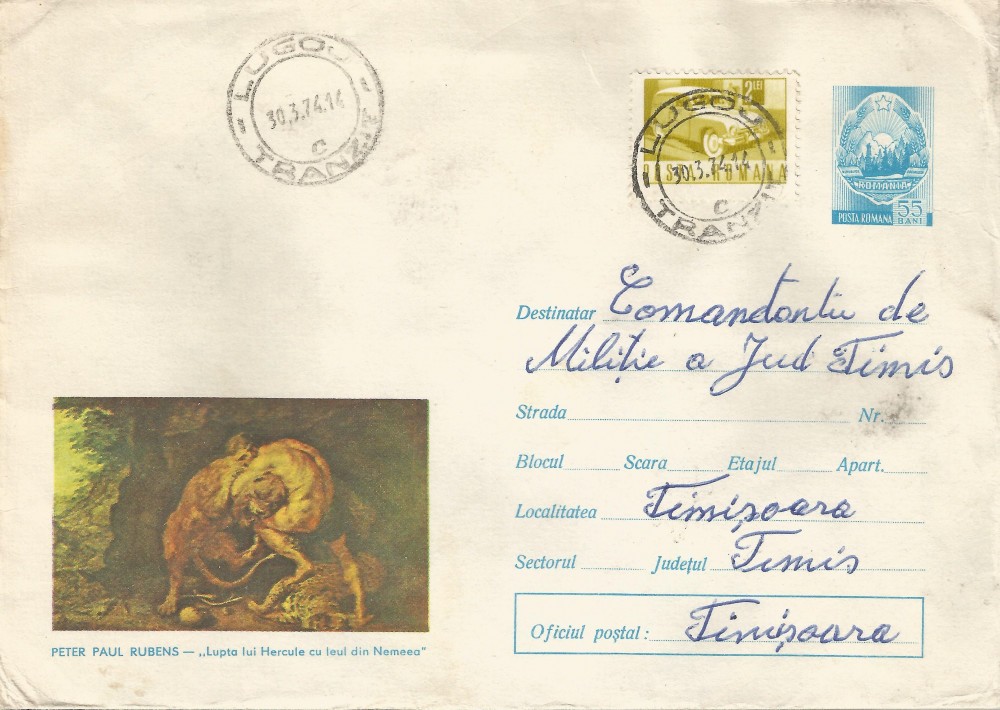 LUGOJ
30.3.74.14
C
TRANZIT
2 LEI
POSTA ROMANA
LUGOJ
30.3.74.14
C
TRANZIT
ROMANIA
POSTA ROMANA 55 BANI
Destinatar Comandantu de
Miliție a Jud Timis
Strada Nr.
Blocul Scara Etajul Apart.
Localitatea Timișoara
Sectorul Județul Timis
Oficiul poștal: Timișoara
PETER PAUL RUBENS — „Lupta lui Hercule cu leul din Nemeea"